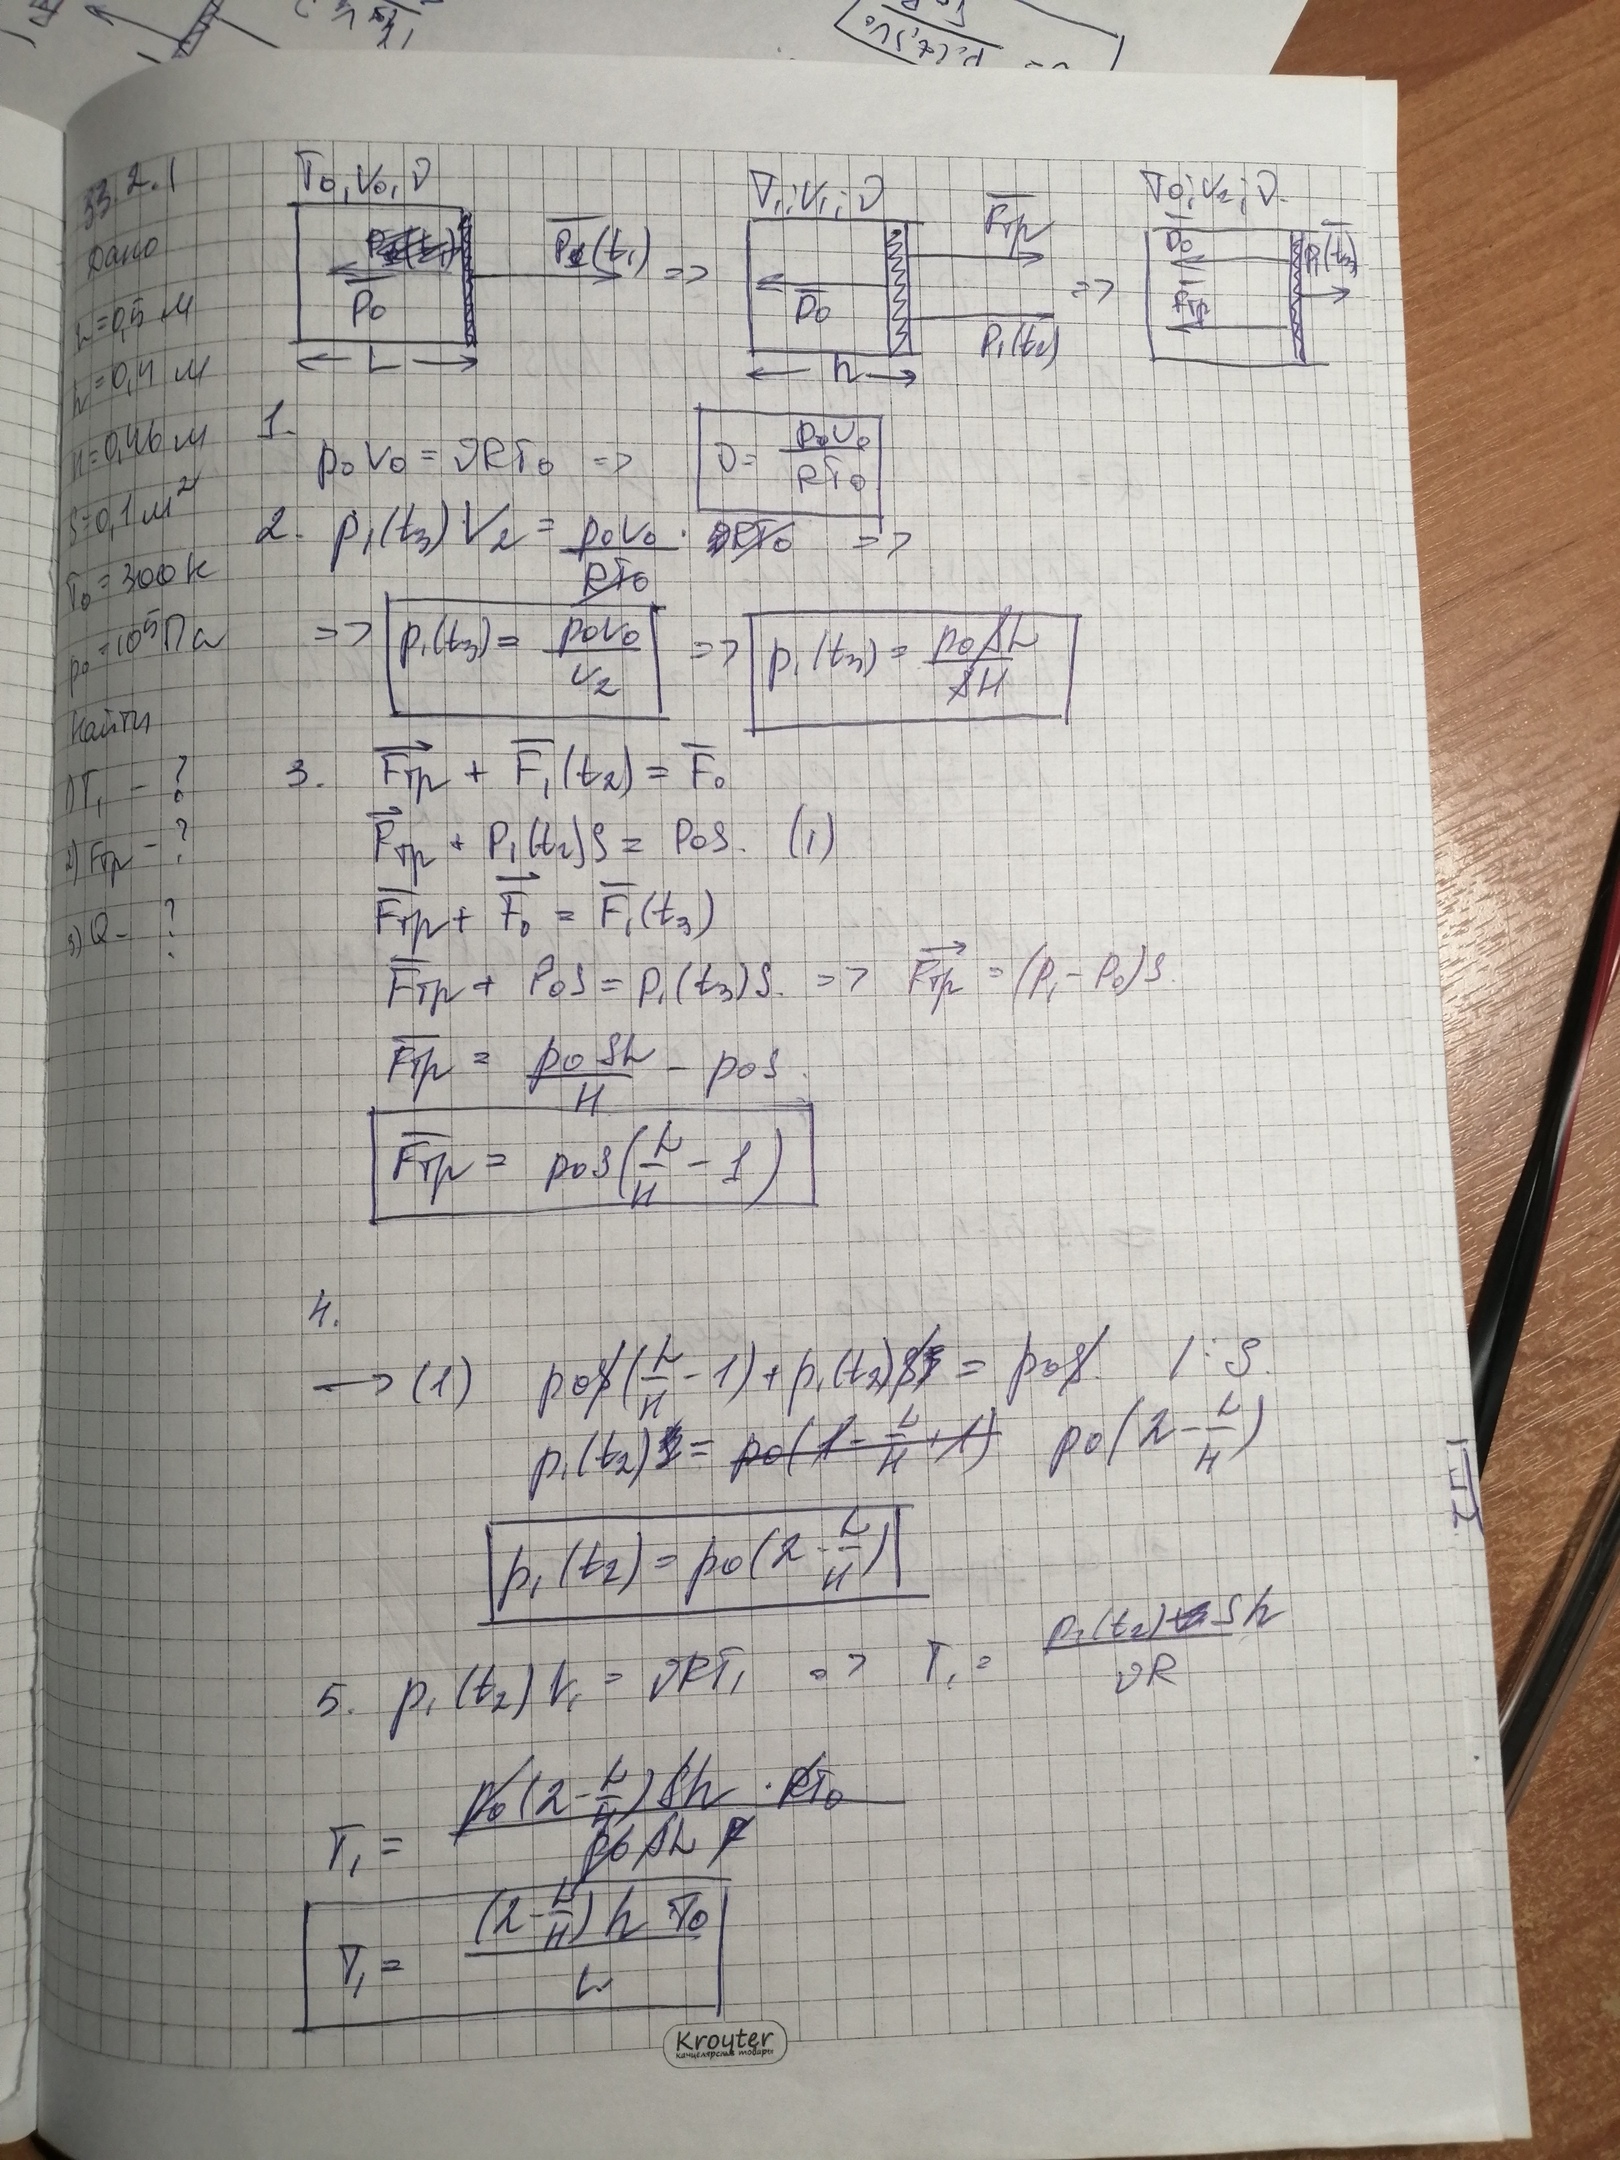 33.2.1
Дано
L=0,5 м
h=0,4 м
H=0,46 м
S=0,1 м²
T₀=300 К
p₀=10⁵ Па
Найти
1) T₁ - ?
2) Fтр - ?
3) Q - ?
T₀, V₀, ν
p₁(t₁)
p₀
L
=>
T₁; V₁; ν
Fтр
p₀
p₁(t₂)
h
=>
T₀; V₂; ν
p₀
p₁(t₃)
Fтр
1.
p₀V₀ = νRT₀ => ν = p₀V₀/RT₀
2. p₁(t₃)V₂ = p₀V₀/RT₀ · RT₀ =>
=> p₁(t₃) = p₀V₀/V₂ => p₁(t₃) = p₀SL/SH
3. Fтр + F₁(t₂) = F₀
Fтр + P₁(t₂)S = P₀S. (1)
Fтр + F₀ = F₁(t₃)
Fтр + P₀S = P₁(t₃)S. => Fтр = (P₁ - P₀)S.
Fтр = p₀SL/H - p₀S.
Fтр = p₀S(L/H - 1)
4.
→ (1) p₀S(L/H - 1) + p₁(t₂)S = p₀S. /:S.
p₁(t₂) = p₀(2 - L/H)
p₁(t₂) = p₀(2 - L/H)
5. p₁(t₂)V₁ = νRT₁ => T₁ = p₁(t₂)Sh/νR
T₁ = p₀(2 - L/H)Sh · RT₀/p₀SL
T₁ = (2 - L/H)hT₀/L
Kroyter
канцелярские товары